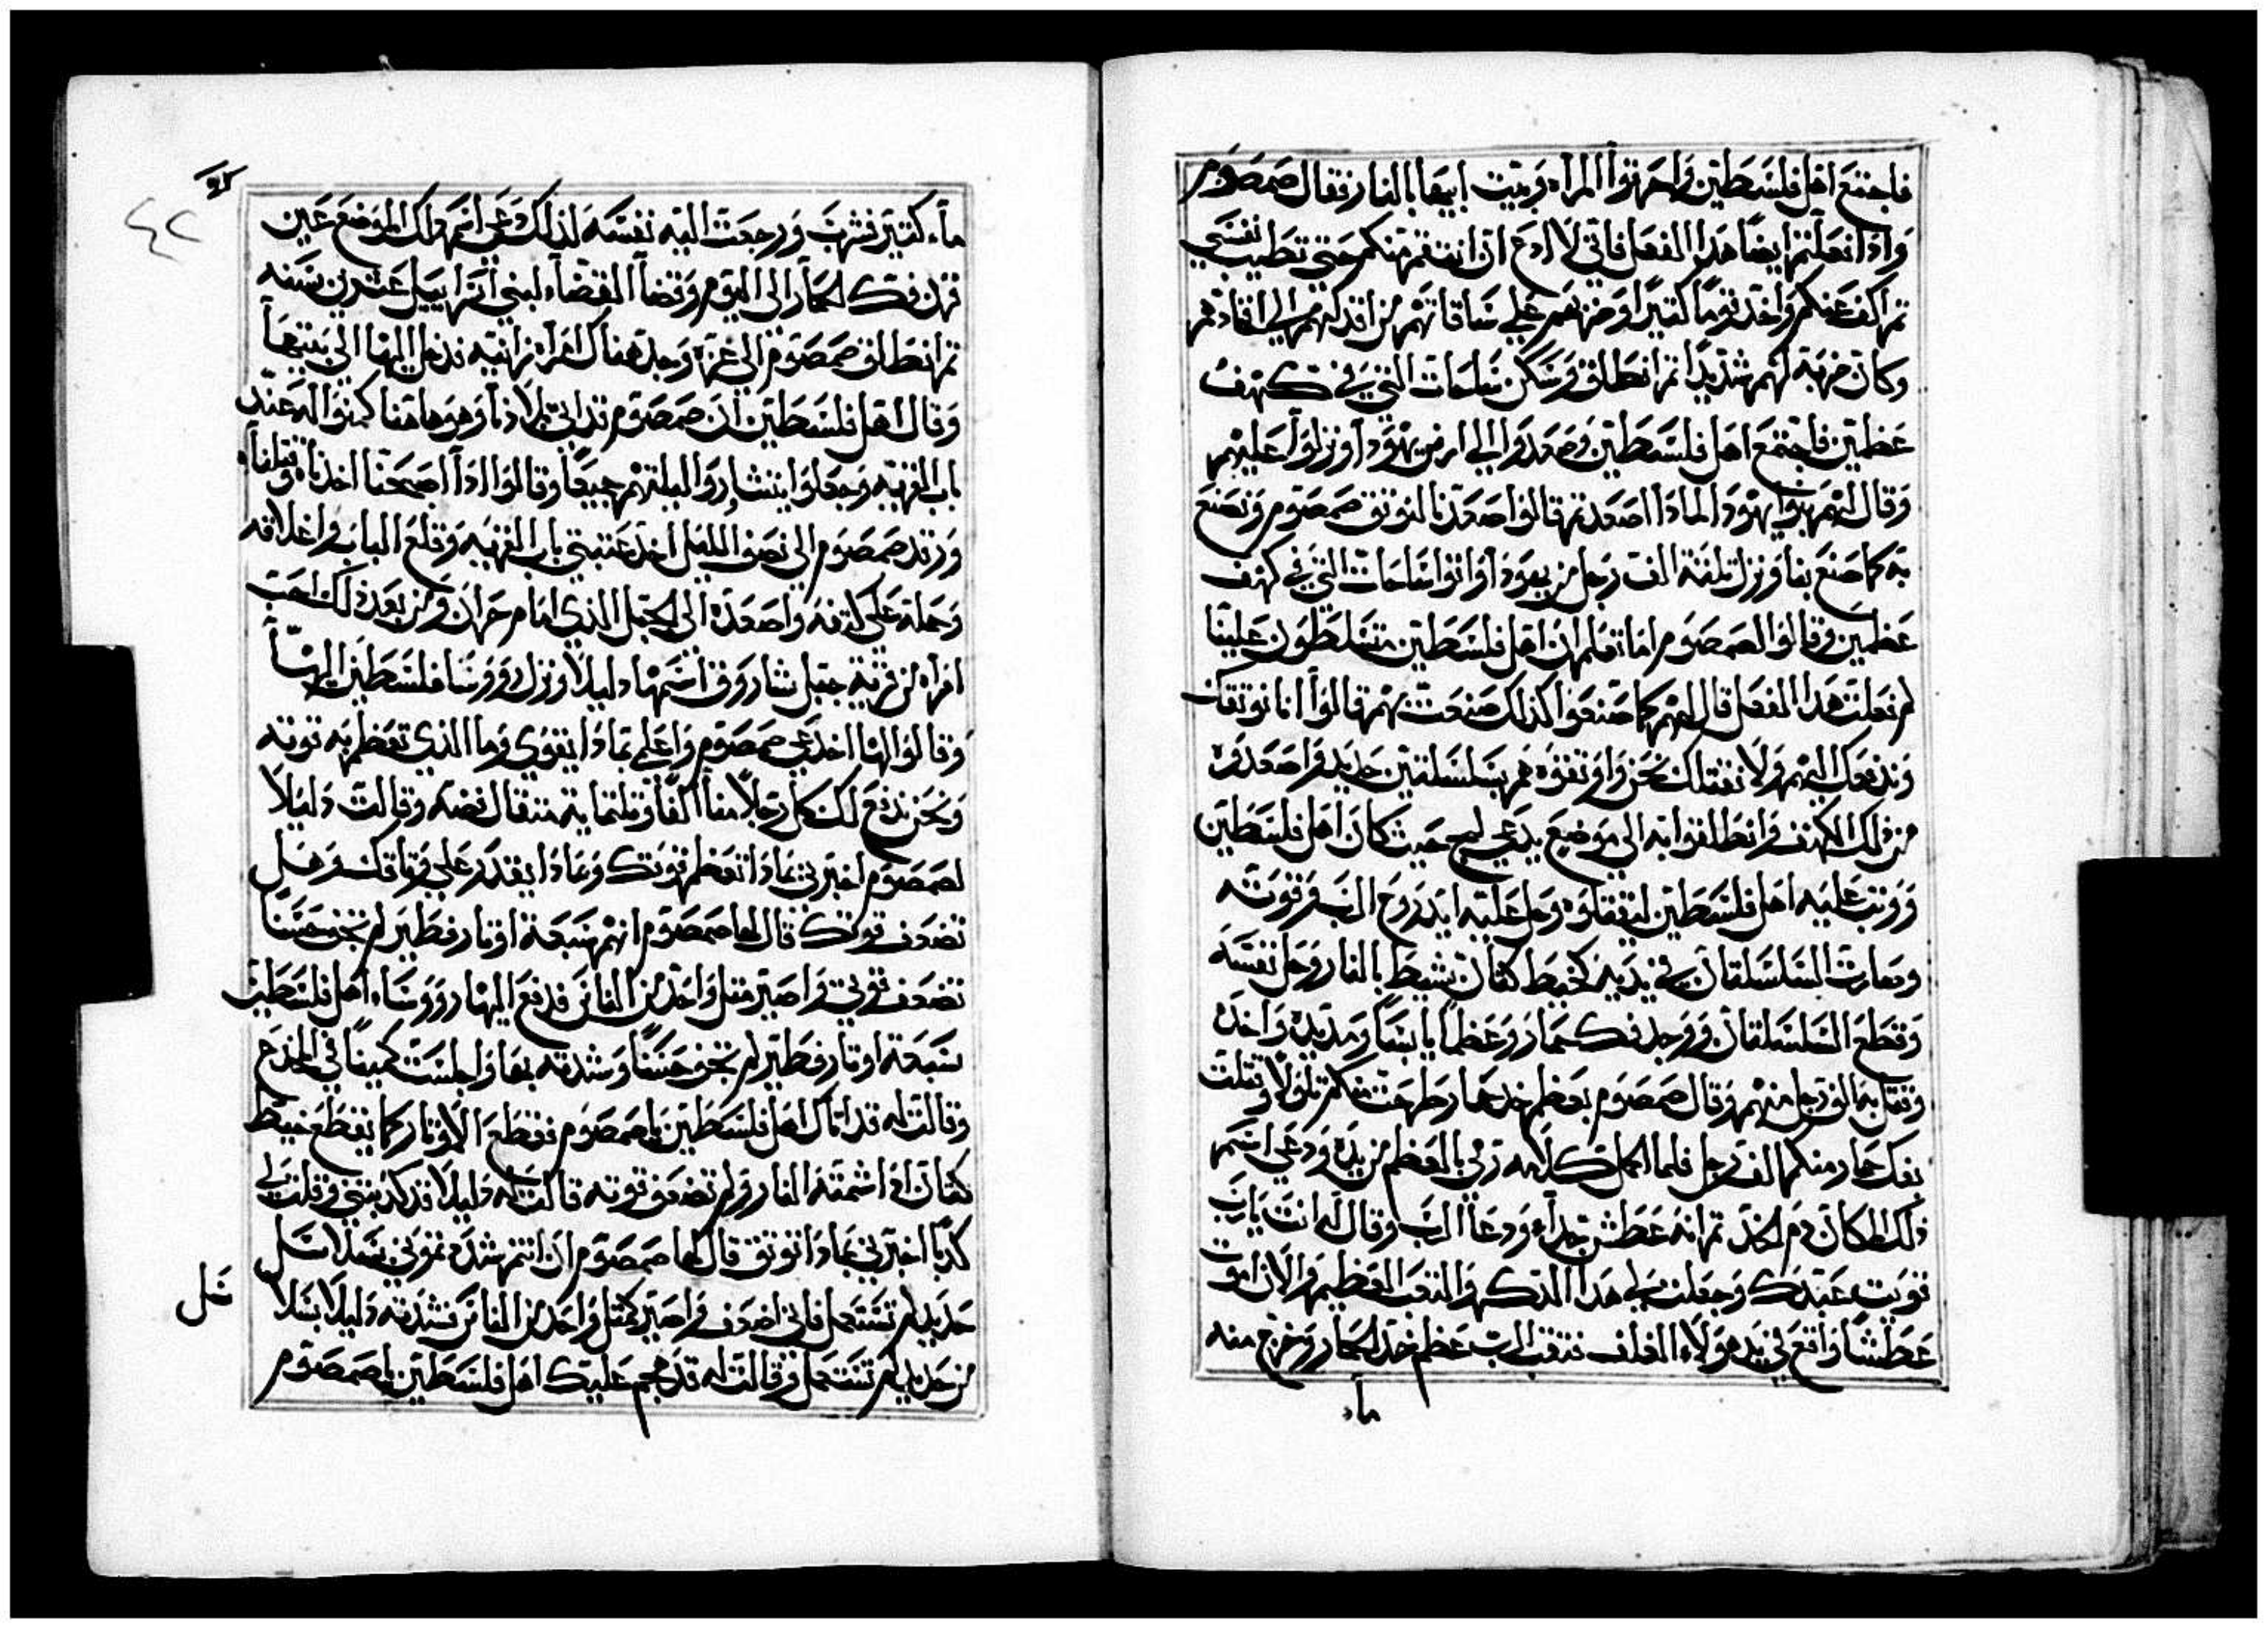 فاجتمع اهل فلسطين واحرقوا المراه وبيت ابيها بالنار فقال صمصوم
واذا فعلتم ايضا هذا الفعل فاني لا ادع ان انتقم منكم حتى تطيب نفسي
ثم اكف عنكم واخذ قوما كثيرا وضربهم على ساقاتهم من اقدامهم الى افخادهم
وكان ضربه لهم شديدا ثم انطلق وسكن ساحات التي في كهف
عظمين فاجتمع اهل فلسطين وصعدوا الى ارض يهودا ونزلوا عليهم
وقال لهم بنوا يهودا لماذا اصعدتم قالوا صعدنا لنوثق صمصوم ونصنع
به كما صنع بنا ونزل ثلثة الف رجل من يهودا واتوا ساحات التي في كهف
عظمين وقالوا لصمصوم اما تعلم ان اهل فلسطين متسلطون علينا
لم فعلت هذا الفعل قال لهم كما صنعوا كذلك صنعت بهم قالوا انا نوثقك
وندفعك اليهم ولا نقتلك نحن واوثقوه هم بسلسلتين حديد واصعدوه
من ذلك الكهف وانطلقوا به الى موضع يدعى لحي حيث كان اهل فلسطين
ووثب عليه اهل فلسطين ليقتلوه وحل عليه ايد روح الرب وقوته
وصارت السلسلتان في يديه كخيط كتان يشيط بالنار وحل نفسه
وقطع السلسلتان ووجد فك حمار وعظما يابسا ومد يده واخذه
وقتل به الف رجل منهم وقال صمصوم بعظم خد حمار طرحت منكم تلولا وقتلت
بفك حمار منكم الف رجل فلما اكمل كلامه رمى بالعظم من يده ودعى اسم
ذلك المكان دم الخد ثم انه عطش جدا ودعا الرب وقال له انت يارب
قويت عبدك وجعلت على هذا الذكر والتعب العظيم والان اموت
عطشا واقع في يد هولاء الغلف ففتق الرب عظم خد الحمار وخرج منه
ماء
ماء كثير فشرب ورجعت اليه نفسه لذلك دعى اسم ذلك الموضع عين
فك الحمار الى اليوم وقضا القضاء لبني اسراييل عشرين سنه
ثم انطلق صمصوم الى غزه وجد هناك امراه زانيه فدخل اليها الى بيتها
وقال اهل فلسطين ان صمصوم قد اتى بلادنا وهو هاهنا كمنوا له عند
باب القريه وجعلوا يتشاروا ليلتهم جميعا وقالوا اذا اصبحنا اخذناه وقتلناه
ورقد صمصوم الى نصف الليل اخذ عتبتي باب القريه وقلع الباب واغلاقه
وحمله على كتفه واصعده الى الجبل الذي امام حران ومن بعد ذلك احب
امراه من قرية جبل شاروق اسمها دليلا ونزل روسا فلسطين اليها
وقالوا لها اخدعي صمصوم واعلمي بماذا يقوى وما الذي تعظم به قوته
ونحن ندفع لك كل رجلا منا الفا وثلثماية مثقال فضه وقالت دليلا
لصمصوم اخبرني بماذا تعظم قوتك وبماذا يقدر على وثاقك وهل
تضعف قوتك قال لها صمصوم انهم سبعة اوتار فطير لم تجف حسنا
تضعف قوتي واصير مثل واحد من الناس فدفع اليها رووساء اهل فلسطين
سبعة اوتار فطير لم تجف حسنا وشدته بها واجلست كمينا في المخدع
وقالت له قد اتاك اهل فلسطين يا صمصوم فقطع الاوتار كما يقطع خيط
كتان اذا شمته النار ولم تضعف قوته قالت له دليلا قد كذبتني وقلت لي
كذبا اخبرني بماذا توثق قال لها صمصوم ان انتم شددتموني بسلاسل
حديد لم تستعمل فاني اضعف واصير كمثل واحد من الناس فشدته دليلا بسلا
سل
من حديد لم تستعمل وقالت له قد هجم عليك اهل فلسطين يا صمصوم